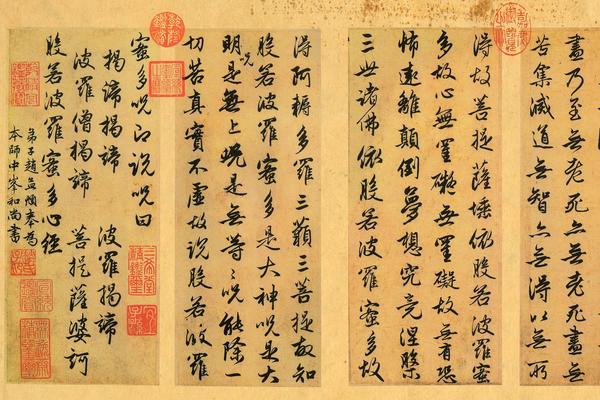 盡乃至無老死亦無老死盡無
苦集滅道無智亦無得以無所
得故菩提薩埵依般若波羅蜜
多故心無罣礙無罣礙故無有恐
怖遠離顛倒夢想究竟涅槃
三世諸佛依般若波羅蜜多故
得阿耨多羅三藐三菩提故知
般若波羅蜜多是大神呪是大
明呪是無上呪是無等〻呪能除一
切苦真實不虛故說般若波羅
蜜多呪即說呪曰
揭諦揭諦 波羅揭諦
波羅僧揭諦 菩提薩婆訶
般若波羅蜜多心經
弟子趙孟頫奉為
本師中峯和尚書